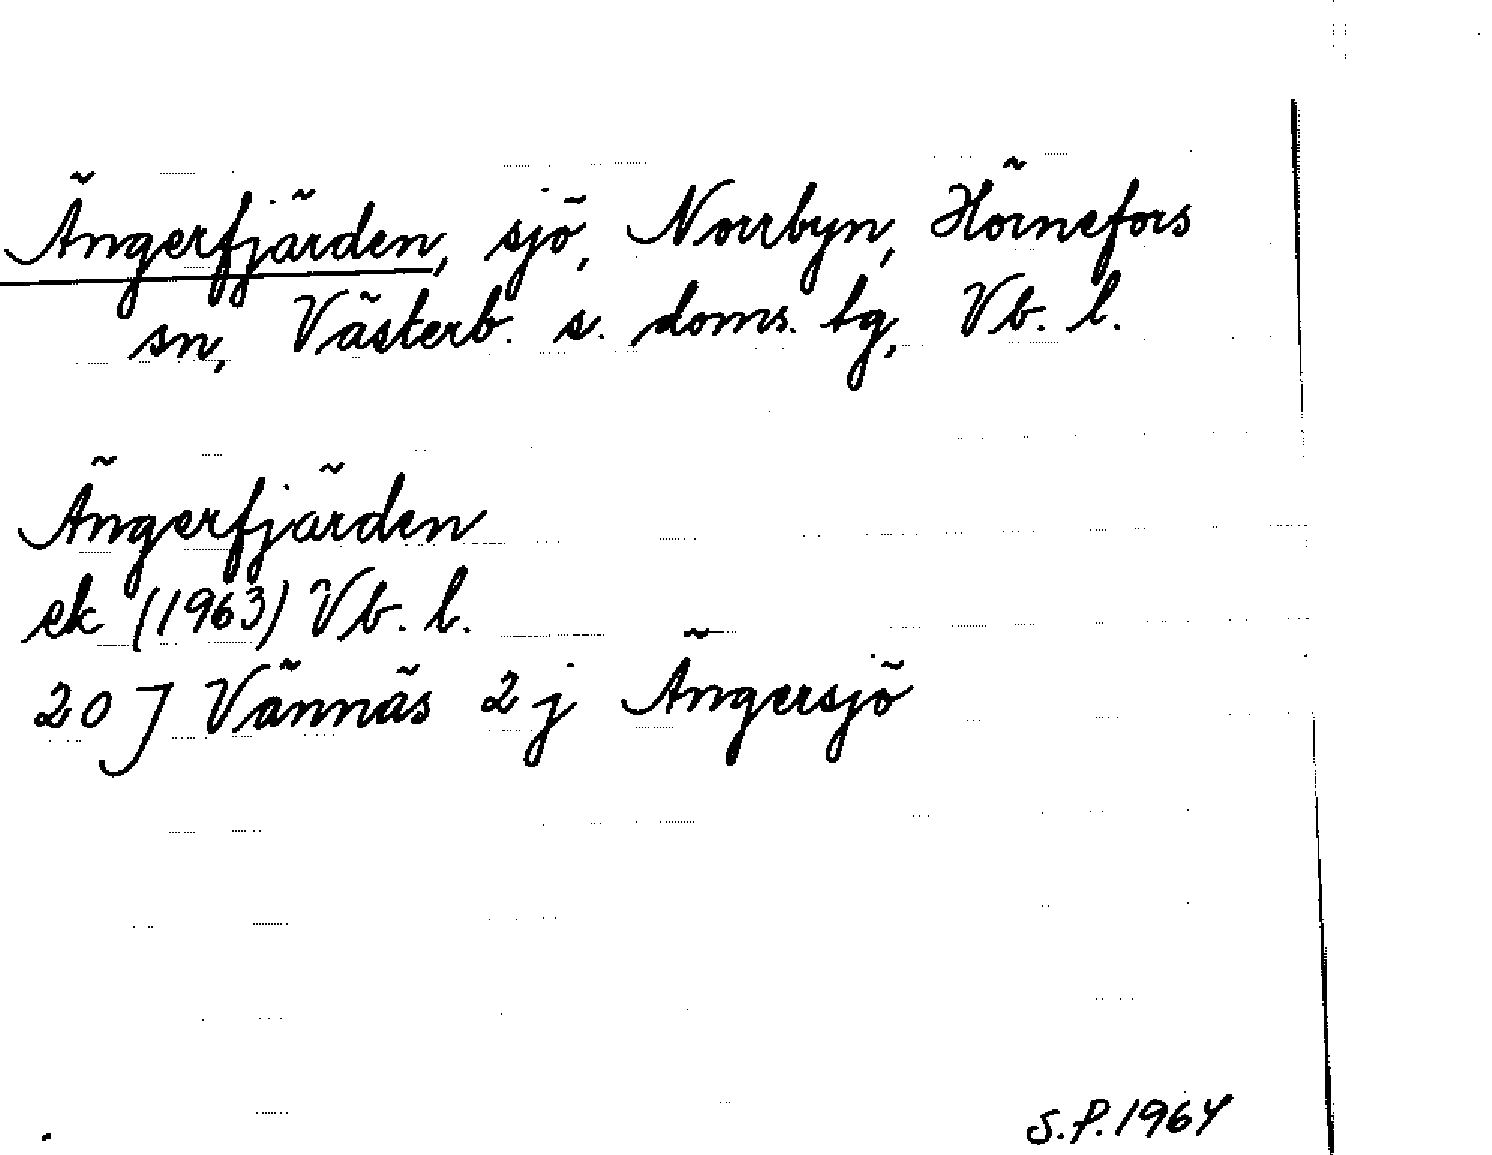 Ängerfjärden, sjö, Norrbyn, Hörnefors
sn, Västerb. s. doms. tg, Vb. l.
Ängerfjärden
ek (1963) Vb. l.
20 J Vännäs 2 j Ängersjö
S.P. 1964